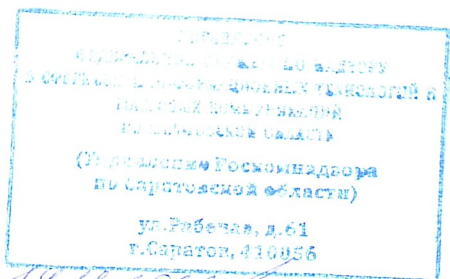 УПРАВЛЕНИЕ
ФЕДЕРАЛЬНОЙ СЛУЖБЫ ПО НАДЗОРУ
В СФЕРЕ СВЯЗИ, ИНФОРМАЦИОННЫХ ТЕХНОЛОГИЙ И
МАССОВЫХ КОММУНИКАЦИЙ
ПО САРАТОВСКОЙ ОБЛАСТИ
(Управление Роскомнадзора
по Саратовской области)
ул.Рабочая, д.61
г.Саратов, 410056